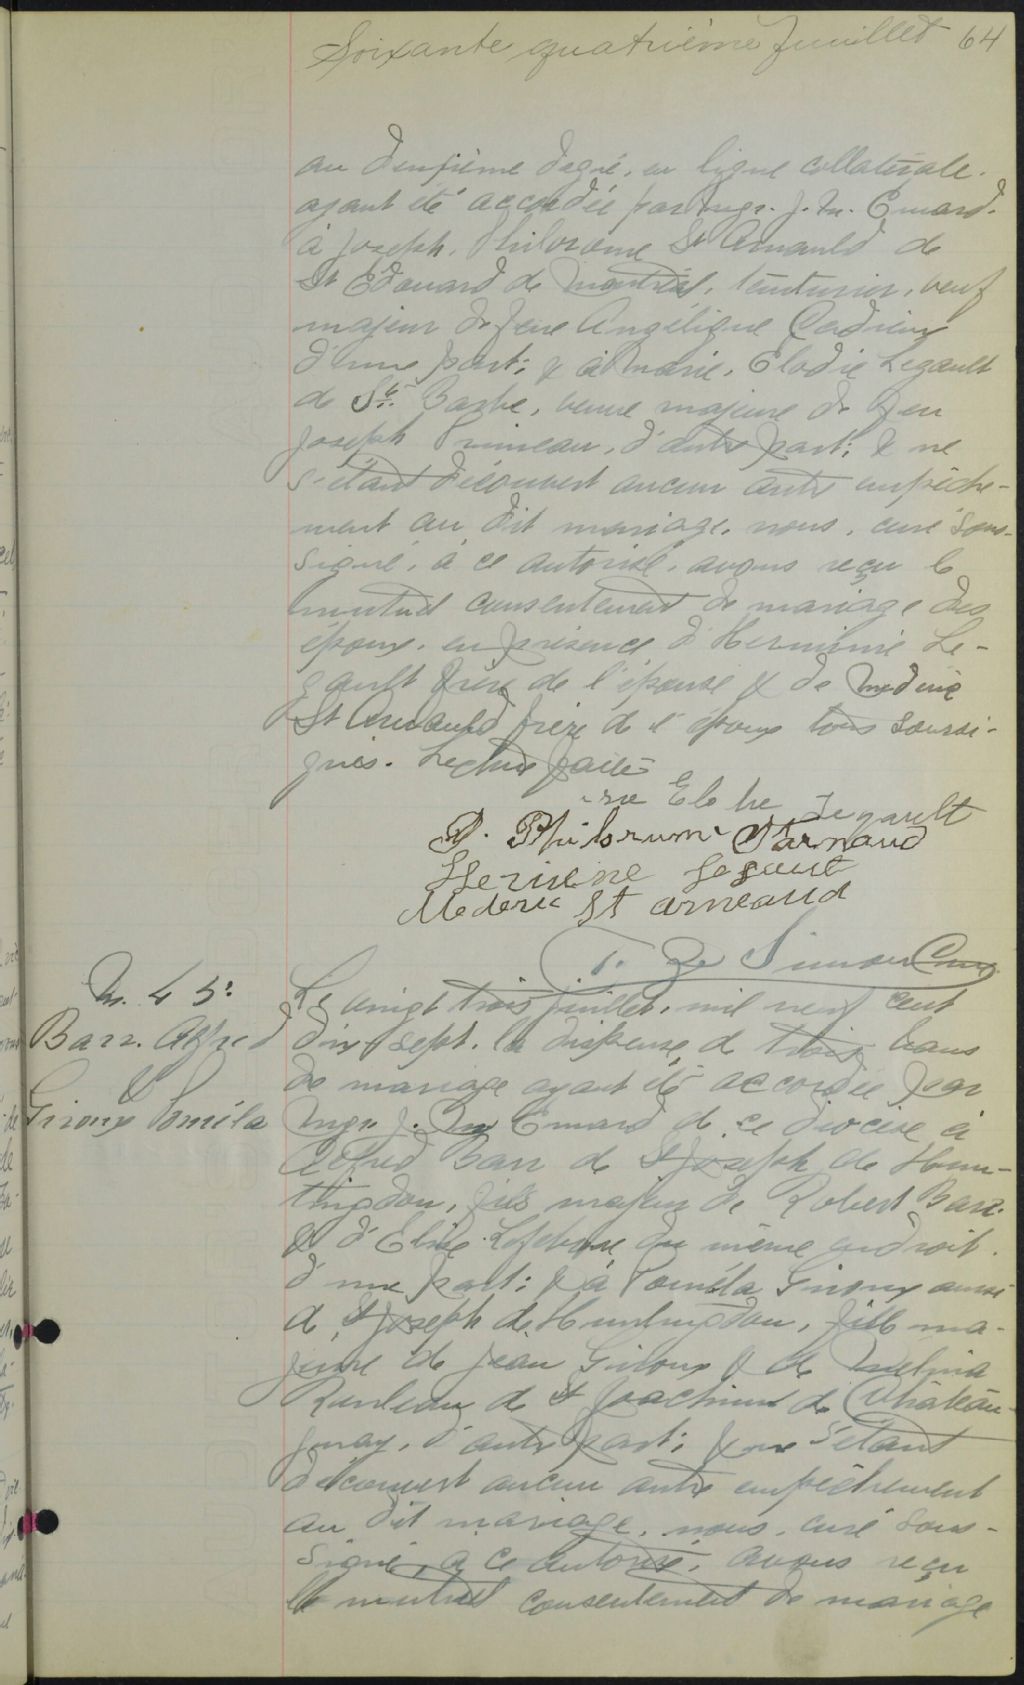 Soixante quatrième feuillet 64
au deuxième degré, en ligne collatérale.
ayant été accordée par Mgr. J. M. Emard.
à Joseph. Philorome St Arnauld de
St Edouard de Montréal, teinturier, veuf
majeur de feue Angélique Cadieux
d'une part; & à Marie. Elodie Legault
de Ste Barbe, veuve majeure de feu
Joseph Primeau, d'autre part; & ne
s'étant découvert aucun autre empêche-
ment au dit mariage, nous, curé sous-
signé, à ce autorisé, avons reçu le
mutuel consentement de mariage des
époux, en présence d'Herménie Le-
gault frère de l'épouse & de Médéric
St Arnauld frère de l'époux tous soussi-
gnés. Lecture faite
Elodie Legault
J. Philorum Starnaud
Hermene Legault
Mederic St arneaud
Curé
M. 45:
Barr. Alfred
&
Giroux Poméla
Le vingt trois juillet, mil neuf cent
dix sept, la dispense de trois bans
de mariage ayant été accordée par
Mgr. J. M. Emard de ce diocèse à
Alfred Barr de St Joseph de Hun-
tingdon, fils majeur de Robert Barr
& d'Elise Lefebvre du même endroit.
d'une part: & à Poméla Giroux aussi
de St Joseph de Huntingdon, fille ma-
jeure de Jean Giroux & de Melina
de St Joachim de Château-
guay, d'autre part; & ne s'étant
découvert aucun autre empêchement
au dit mariage, nous, curé sous-
signé, à ce autorisé, avons reçu
le mutuel consentement de mariage